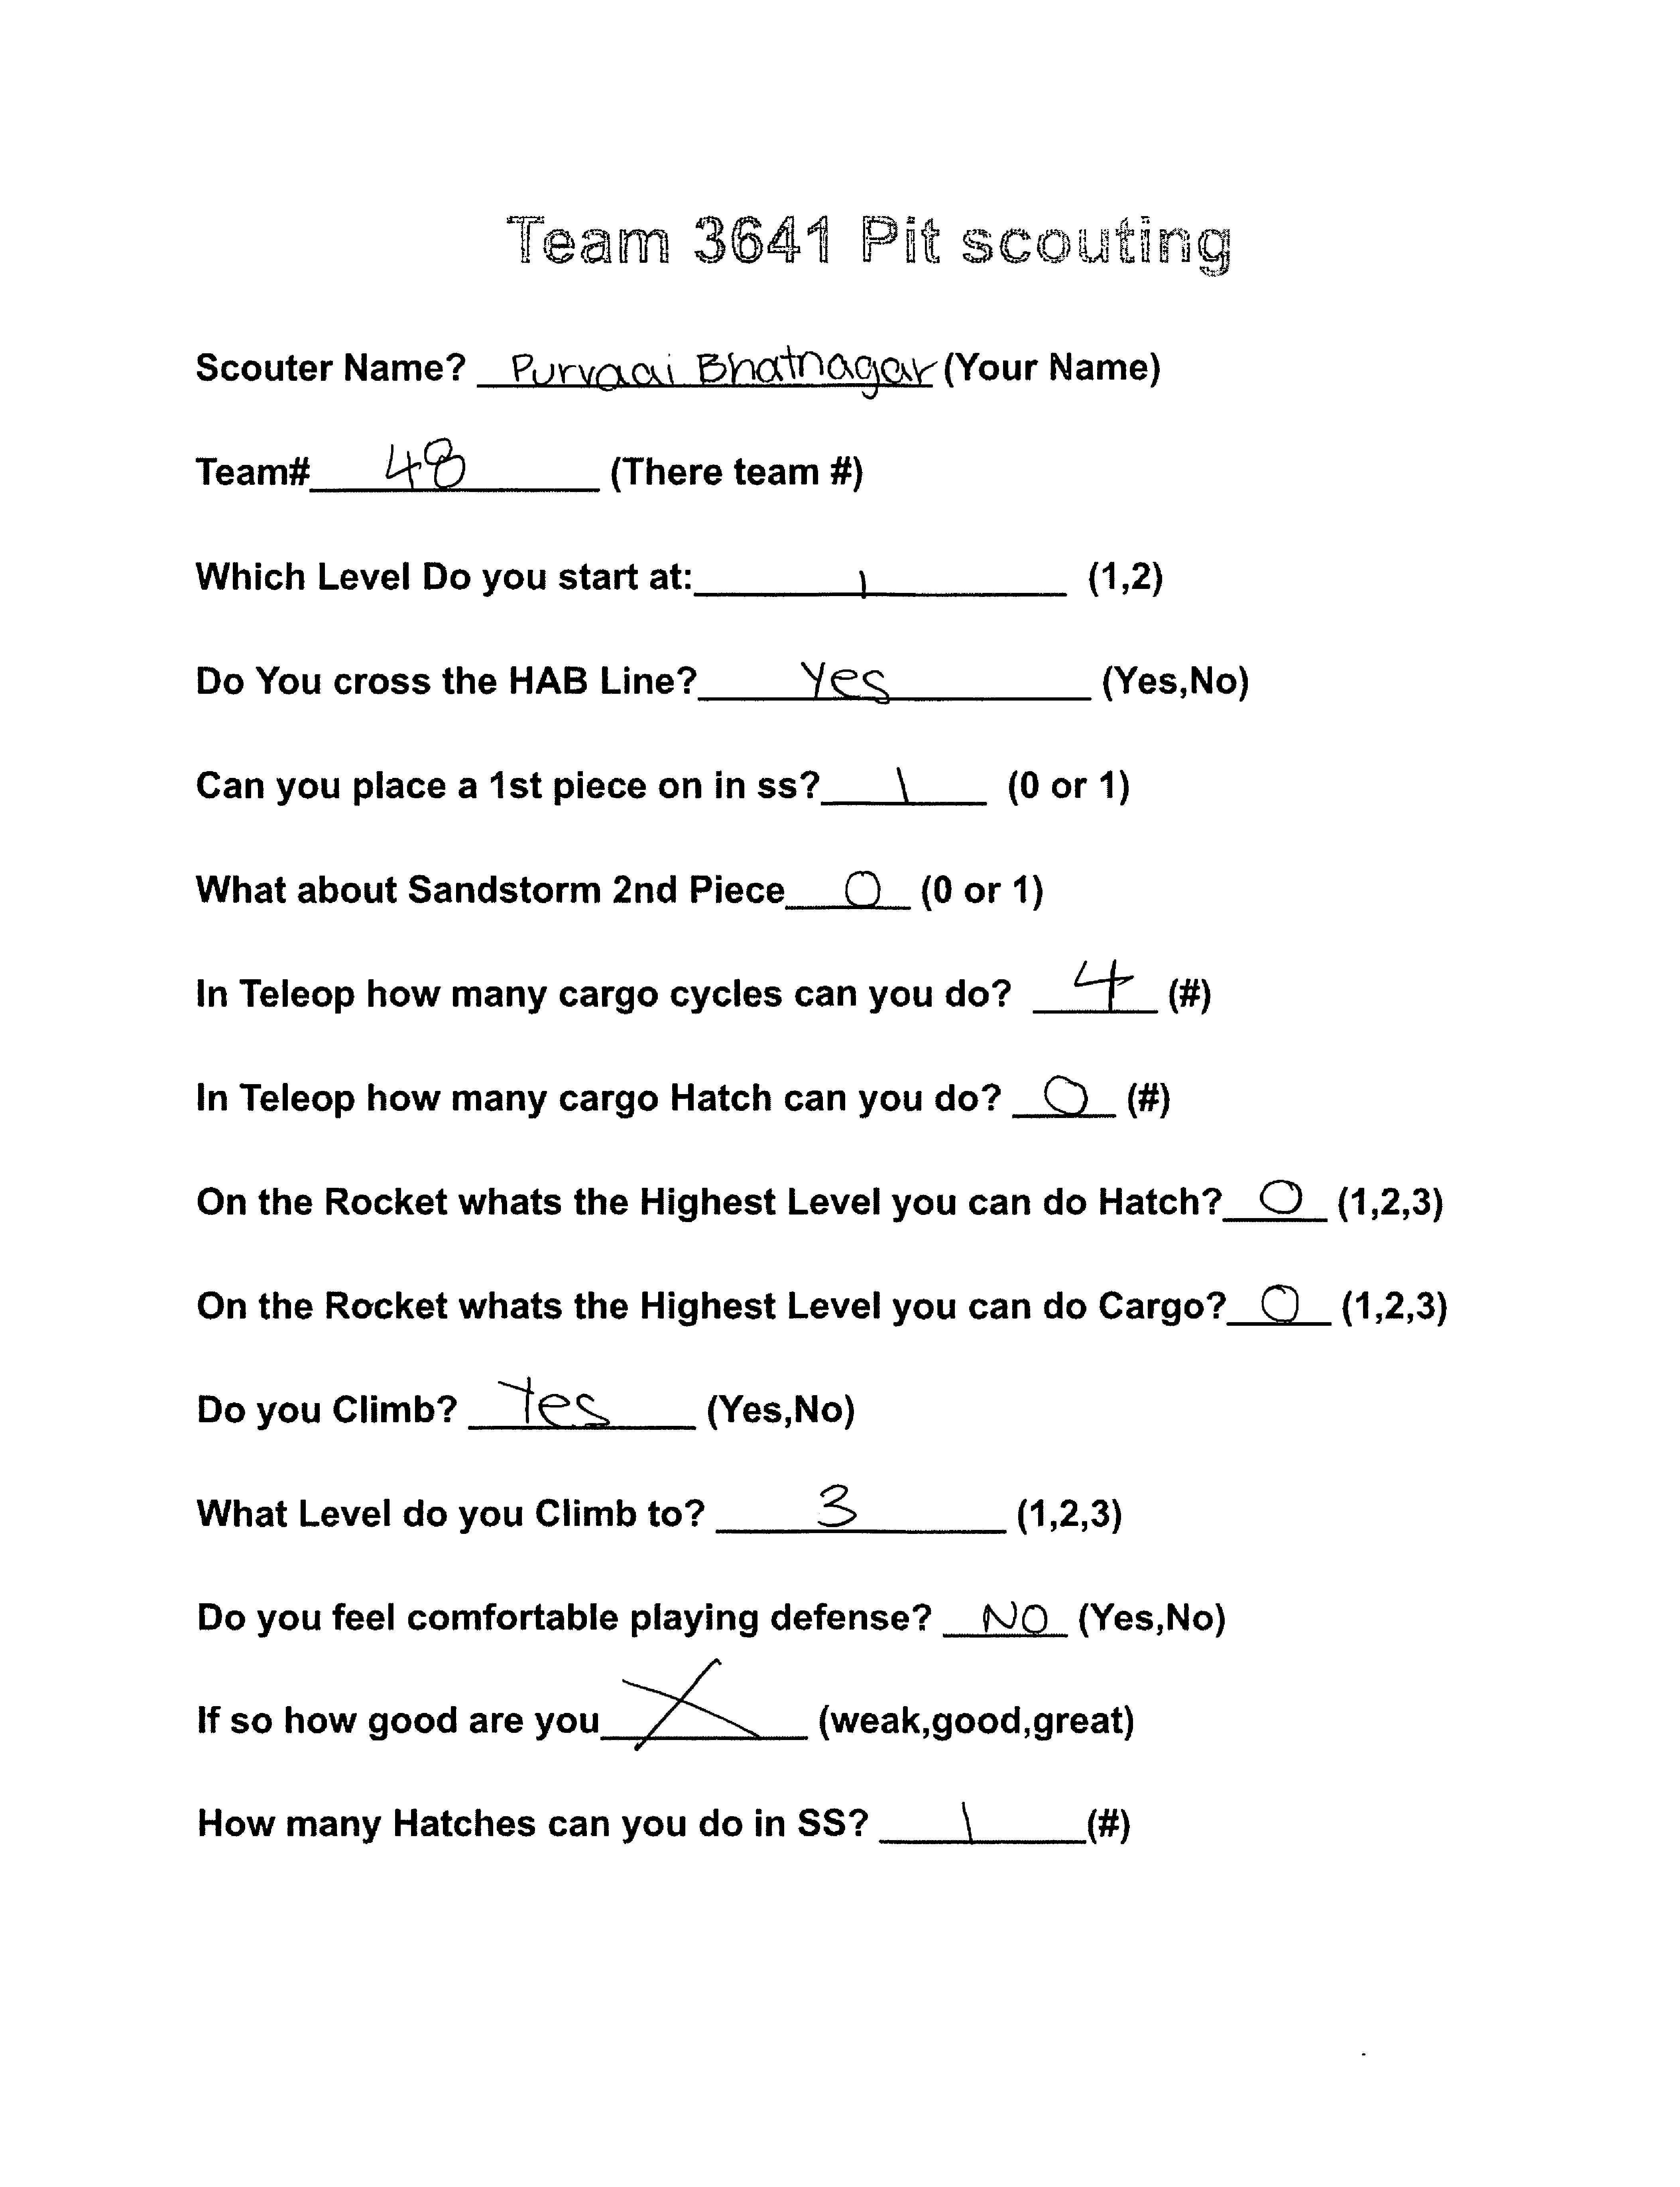 Team 3641 Pit scouting
Scouter Name? Purvaai Bhatnagar (Your Name)
Team# 48 (There team #)
Which Level Do you start at: 1 (1,2)
Do You cross the HAB Line? Yes (Yes,No)
Can you place a 1st piece on in ss? 1 (0 or 1)
What about Sandstorm 2nd Piece 0 (0 or 1)
In Teleop how many cargo cycles can you do? 4 (#)
In Teleop how many cargo Hatch can you do? 0 (#)
On the Rocket whats the Highest Level you can do Hatch? 0 (1,2,3)
On the Rocket whats the Highest Level you can do Cargo? 0 (1,2,3)
Do you Climb? Yes (Yes,No)
What Level do you Climb to? 3 (1,2,3)
Do you feel comfortable playing defense? NO (Yes,No)
If so how good are you X (weak,good,great)
How many Hatches can you do in SS? 1 (#)